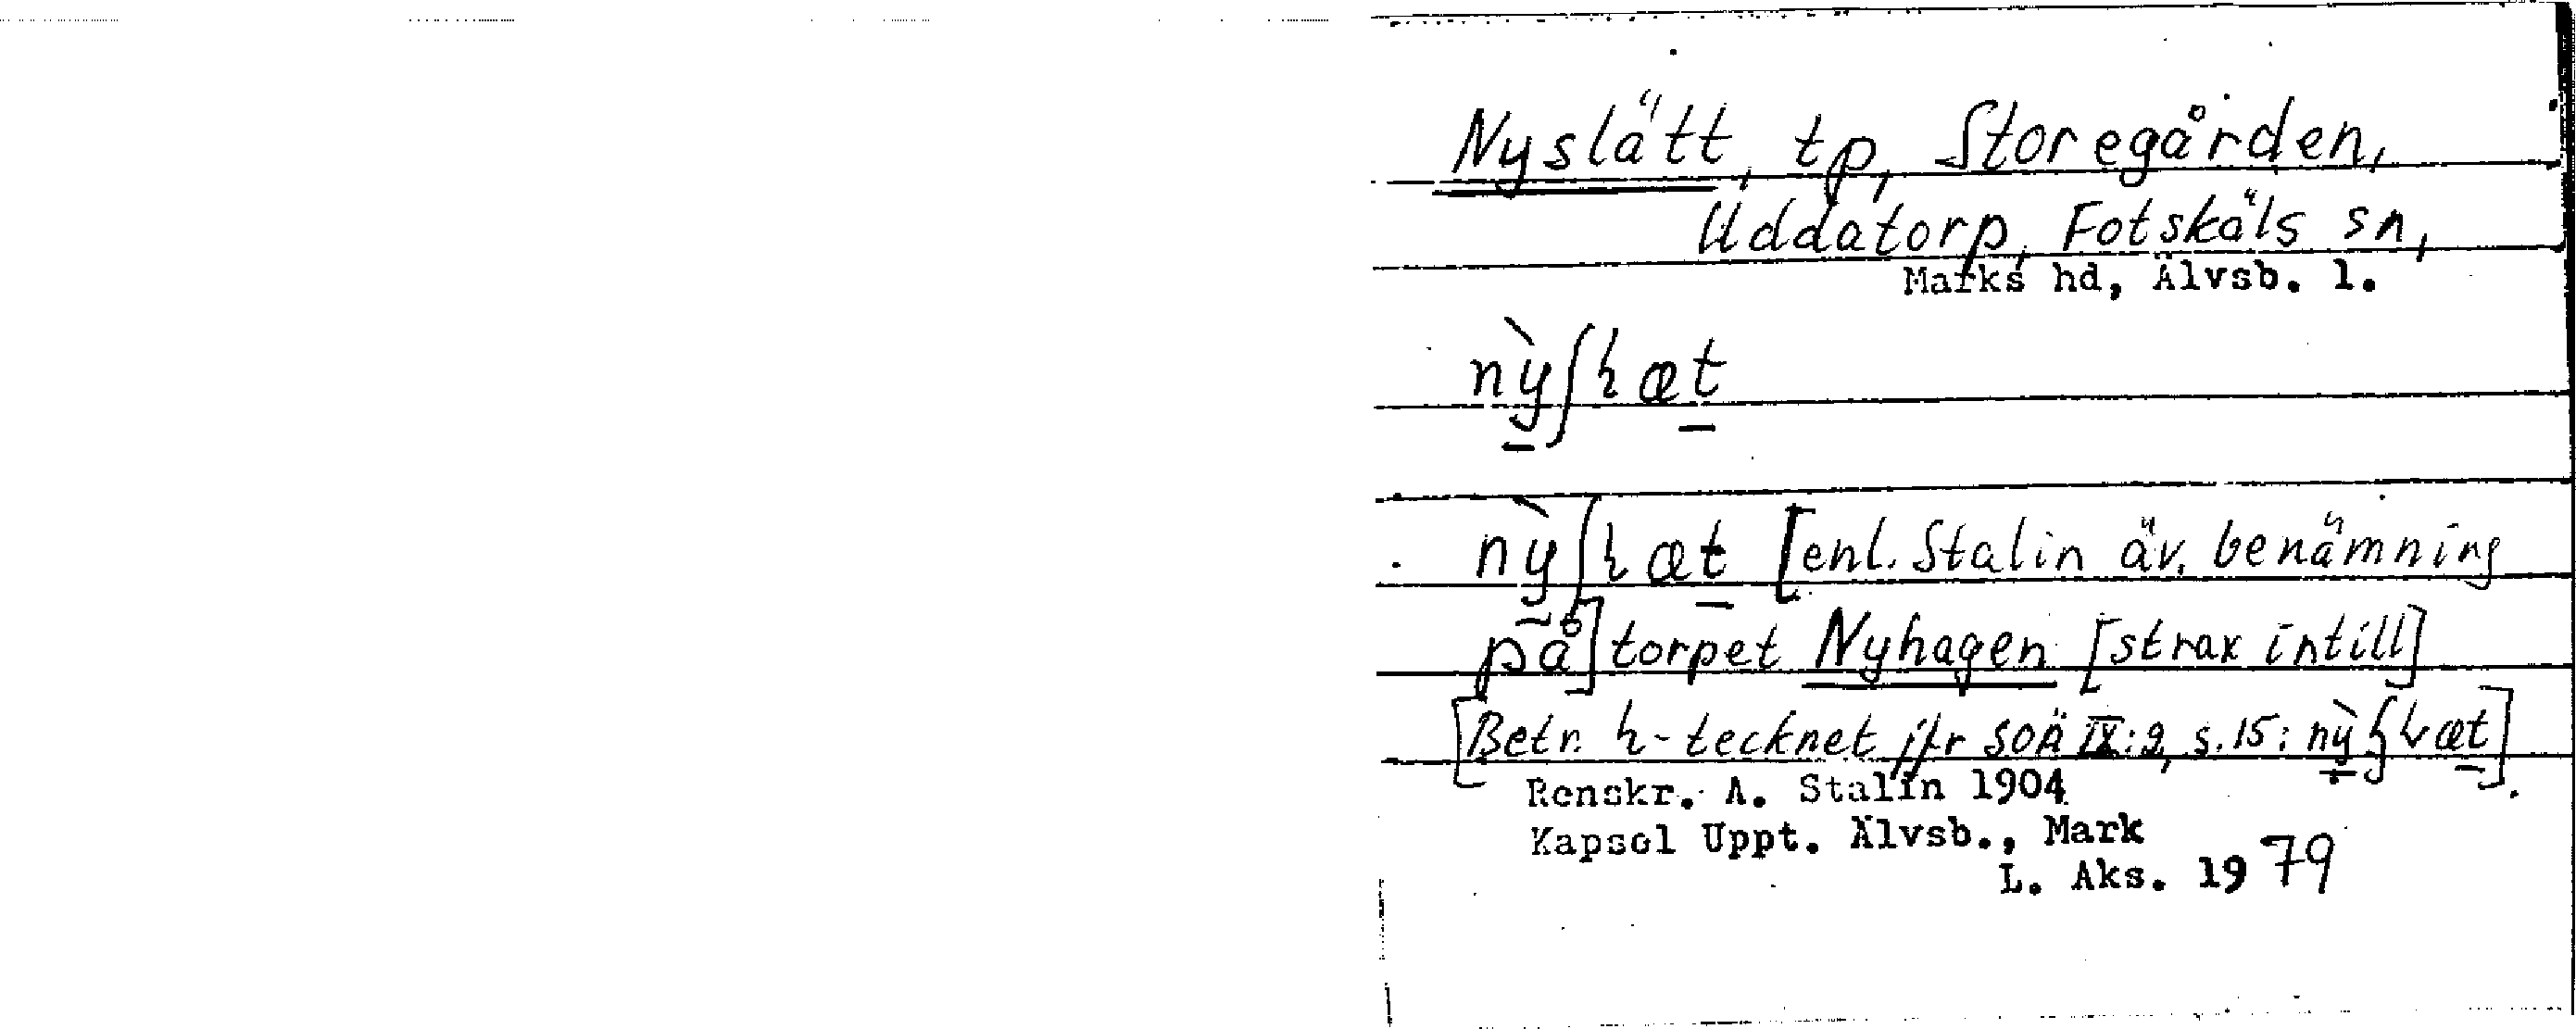 Nyslätt, tp, Storegården,
Uddatorp, Fotskäls sn,
Marks hd, Älvsb. l.
nỳʃɦæt
nỳʃɦæt [enl. Stalin äv. benämning
på] torpet Nyhagen [strax intill]
[Betr. h-tecknet jfr SOÄ IX:2, s. 15: nỳ
Renskr. A. Stalin 1904
Kapsel Uppt. Älvsb., Mark
L. Aks. 1979